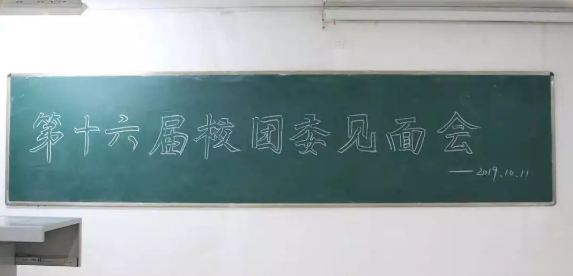 第十六届校团委见面会
——2019.10.11